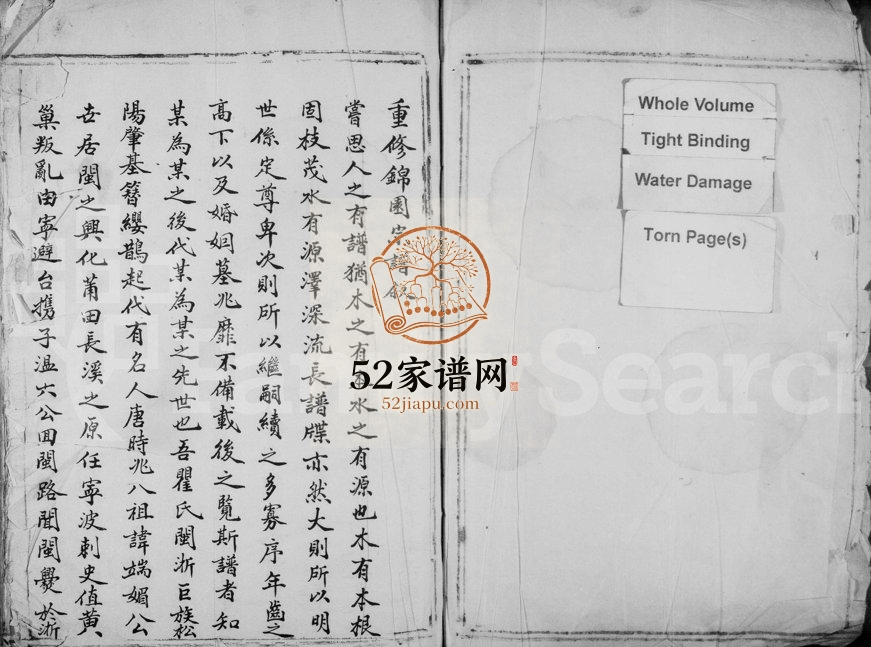 重修錦園宗譜叙
嘗思人之有譜猶木之有本水之有源也木有本根
固枝茂水有源澤深流長譜牒亦然大則所以明
世係定尊卑次則所以繼嗣續之多寡序年齒之
高下以及婚姻墓兆靡不備載後之覽斯譜者知
某為某之後代某為某之先世也吾瞿氏閩浙巨族松
陽肇基簪纓鵲起代有名人唐時兆八祖諱端媚公
世居閩之興化莆田長溪之原任寧波刺史值黃
巢叛亂由寧避台携子溫六公回閩路聞閩釁於浙
Whole Volume
Tight Binding
Water Damage
Torn Page(s)
52家谱网
52jiapu.com
FamilySearch